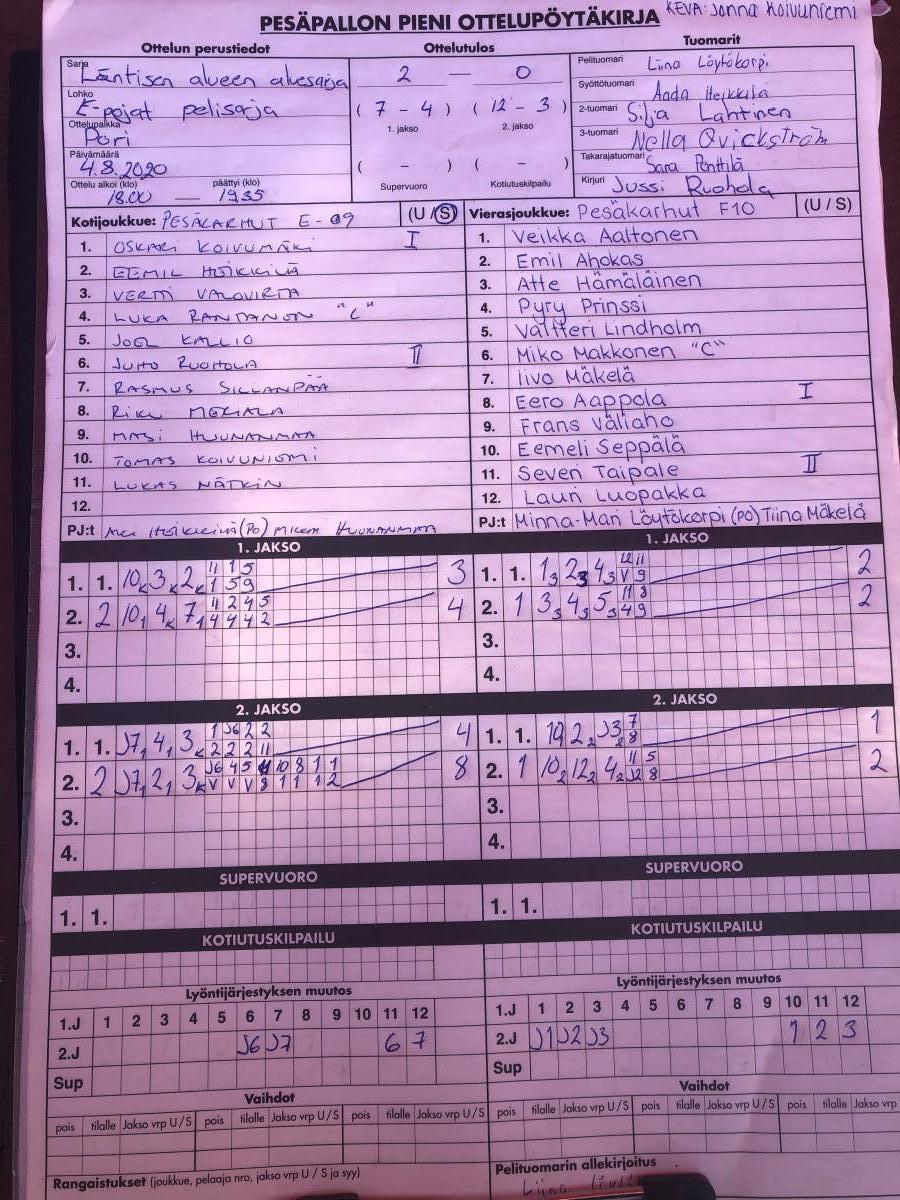 PESÄPALLON PIENI OTTELUPÖYTÄKIRJA KEVA: Jonna Koivuniemi
Ottelun perustiedot
Sarja
Läntisen alueen aluesarja
Lohko
E-pojat pelisarja
Ottelupaikka
Pori
Päivämäärä
4.8.2020
Ottelu alkoi (klo) päättyi (klo)
18.00 — 19.35
Ottelutulos
2 — 0
( 7 - 4 ) ( 12 - 3 )
1. jakso 2. jakso
( - ) ( - )
Supervuoro Kotiutuskilpailu
Tuomarit
Pelituomari Liina Löytökorpi
Syöttötuomari Aada Heikkilä
2-tuomari Silja Lahtinen
3-tuomari Nella Qvickström
Takarajatuomari Sara Penttilä
Kirjuri Jussi Ruohola
Kotijoukkue: PESÄKARHUT E-09 (U / S)
1. OSKARI KOIVUMÄKI I
2. EEMIL HEIKKILÄ
3. VERTTI VALOVIRTA
4. LUKA RANTANEN "C"
5. JOEL KALLIO
6. JUHO RUOHOLA II
7. RASMUS SILLANPÄÄ
8. RIKU MERIALA
9. MASI HUUNANMAA
10. TOMAS KOIVUNIEMI
11. LUKAS NÄTKIN
12.
PJ:t Aki Heikkilä (PO) Mikem HUUNANMAA
Vierasjoukkue: Pesäkarhut F10 (U / S)
1. Veikka Aaltonen
2. Emil Ahokas
3. Atte Hämäläinen
4. Pyry Prinssi
5. Valtteri Lindholm
6. Miko Makkonen "C"
7. Iivo Mäkelä
8. Eero Aappola I
9. Frans Väliaho
10. Eemeli Seppälä
11. Severi Taipale II
12. Lauri Luopakka
PJ:t Minna-Mari Löytökorpi (PO) Tiina Mäkelä
1. JAKSO
11 1 5
1. 1. 10K 3K 2K 1 5 9 3
11 2 4 5
2. 2 10,1 4K 7,1 4 4 4 2 4
3.
4.
1. JAKSO
12 11
1. 1. 1 3 2 3 4 3 V 9 2
11 8
2. 1 3 3 4 3 5 3 4 9 2
3.
4.
2. JAKSO
1 J6 2 2
1. 1. J7 1 4 1 3K 2 2 2 11 4
J6 4 5 11 10 8 1 1
2. 2 J7 1 2 1 3K V V V 8 11 11 12 8
3.
4.
2. JAKSO
7
1. 1. 19 2 2 J3 2 8 1
11 5
2. 1 10 2 12 2 4 2 J2 8 2
3.
4.
SUPERVUORO
1. 1.
SUPERVUORO
1. 1.
KOTIUTUSKILPAILU
KOTIUTUSKILPAILU
Lyöntijärjestyksen muutos
1.J 1 2 3 4 5 6 7 8 9 10 11 12
2.J J6 J7 6 7
Sup
Lyöntijärjestyksen muutos
1.J 1 2 3 4 5 6 7 8 9 10 11 12
2.J J1 J2 J3 1 2 3
Sup
Vaihdot
pois tilalle Jakso vrp U / S pois tilalle Jakso vrp U / S pois tilalle Jakso vrp U / S
Vaihdot
pois tilalle Jakso vrp U / S pois tilalle Jakso vrp U / S pois tilalle Jakso vrp
Rangaistukset (joukkue, pelaaja nro, jakso vrp U / S ja syy)
Pelituomarin allekirjoitus
Liina